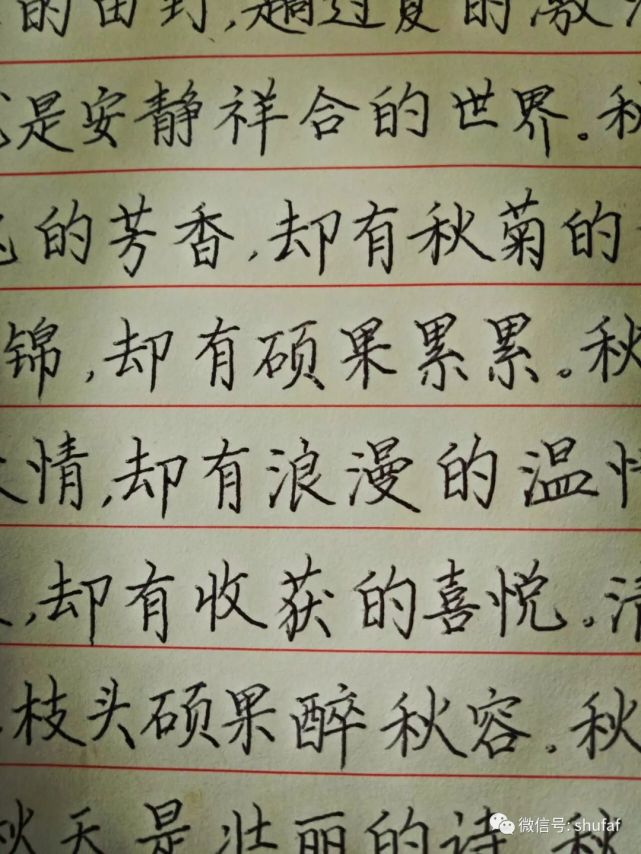 的田野,趟过夏的激
是安静祥合的世界。秋
的芳香,却有秋菊的
锦,却有硕果累累。秋
情,却有浪漫的温情
,却有收获的喜悦。清
枝头硕果醉秋容。秋
秋天是壮丽的诗,秋
微信号: shufaf